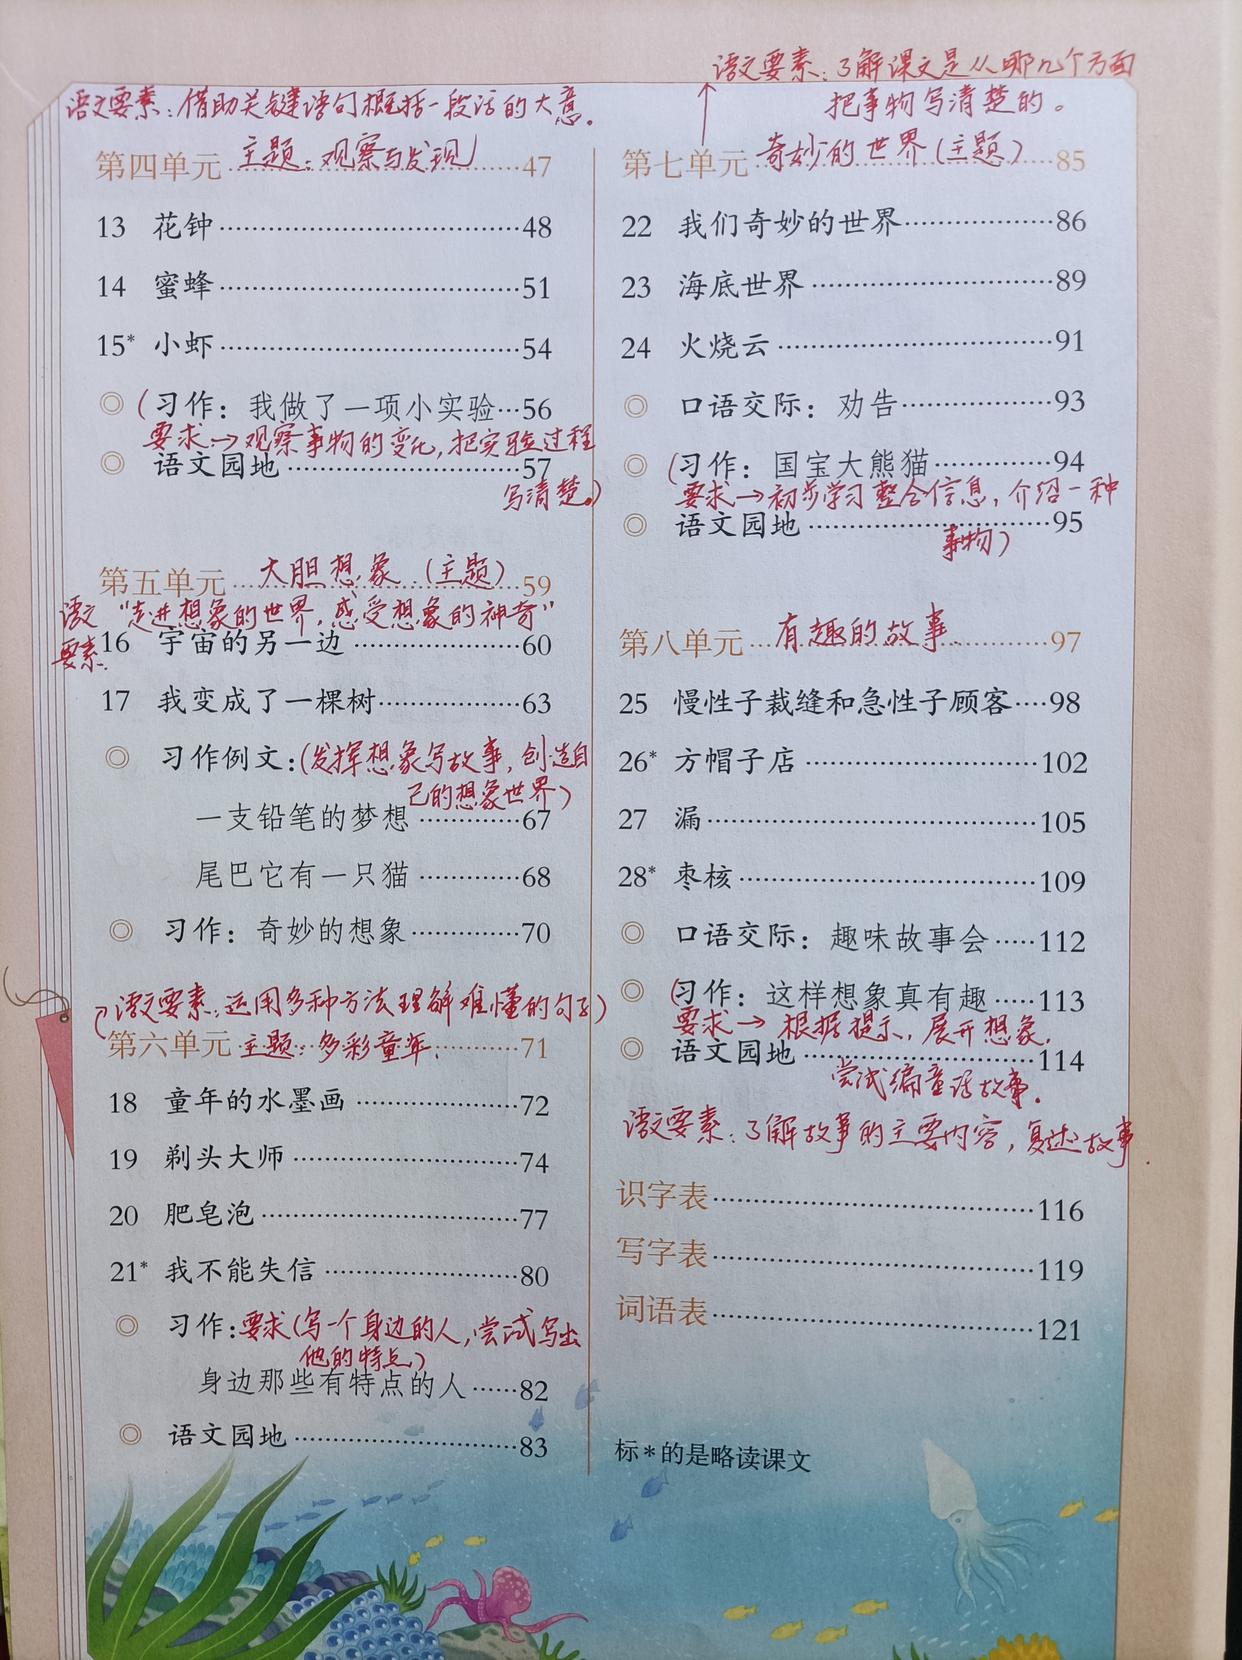 语文要素：借助关键语句概括一段话的大意。
第四单元 主题：观察与发现 47
13 花钟 48
14 蜜蜂 51
15* 小虾 54
◎ (习作：我做了一项小实验 56
要求→观察事物的变化，把实验过程
◎ 语文园地 57
写清楚。)
第五单元 大胆想象（主题） 59
语文 “走进想象的世界，感受想象的神奇”
要素：
16 宇宙的另一边 60
17 我变成了一棵树 63
◎ 习作例文：(发挥想象写故事，创造自
己的想象世界)
一支铅笔的梦想 67
尾巴它有一只猫 68
◎ 习作：奇妙的想象 70
(语文要素：运用多种方法理解难懂的句子)
第六单元 主题：多彩童年。 71
18 童年的水墨画 72
19 剃头大师 74
20 肥皂泡 77
21* 我不能失信 80
◎ 习作：要求(写一个身边的人，尝试写出
他的特点)
身边那些有特点的人 82
◎ 语文园地 83
语文要素：了解课文是从哪几个方面
把事物写清楚的。
第七单元 奇妙的世界（主题） 85
22 我们奇妙的世界 86
23 海底世界 89
24 火烧云 91
◎ 口语交际：劝告 93
◎ (习作：国宝大熊猫 94
要求→初步学习整合信息，介绍一种
◎ 语文园地 95
事物)
第八单元 有趣的故事 97
25 慢性子裁缝和急性子顾客 98
26* 方帽子店 102
27 漏 105
28* 枣核 109
◎ 口语交际：趣味故事会 112
◎ (习作：这样想象真有趣 113
要求→根据提示，展开想象，
◎ 语文园地 114
尝试编童话故事。
语文要素：了解故事的主要内容，复述故事
识字表 116
写字表 119
词语表 121
标*的是略读课文